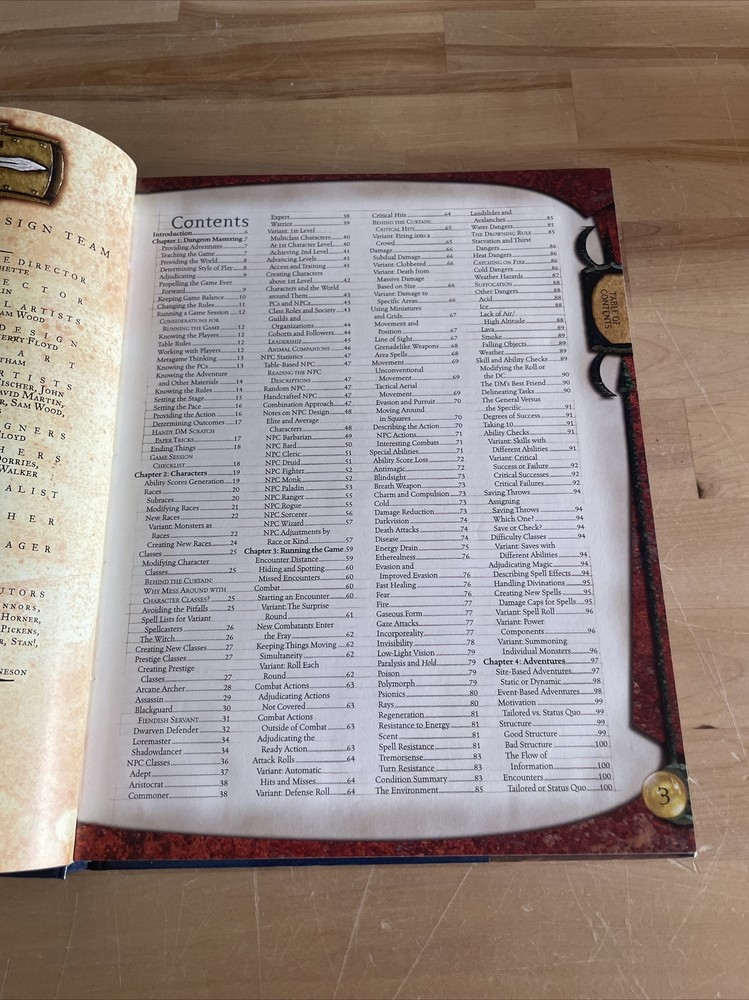 SIGN TEAM
E DIRECTOR
HETTE
E C T O R
LIN
L ARTISTS
AM WOOD
D E S I G N
ERRY FLOYD
A R T
THAM
R T I S T S
FISCHER, JOHN
AVID MARTIN,
R, SAM WOOD,
G N E R S
LOYD
H E R S
DORRIES,
WALKER
A L I S T
H E R
A G E R
UTORS
NNORS,
HORNER,
PICKENS,
R, STAN!,
NESON
Contents
Introduction 6
Chapter 1: Dungeon Mastering 7
Providing Adventures 7
Teaching the Game 7
Providing the World 8
Determining Style of Play 8
Adjudicating 9
Propelling the Game Ever
Forward 9
Keeping Game Balance 10
Changing the Rules 11
Running a Game Session 12
CONSIDERATIONS FOR
RUNNING THE GAME 12
Knowing the Players 12
Table Rules 12
Working with Players 12
Metagame Thinking 13
Knowing the PCs 13
Knowing the Adventure
and Other Materials 14
Knowing the Rules 14
Setting the Stage 15
Setting the Pace 16
Providing the Action 16
Determining Outcomes 17
HANDY DM SCRATCH
PAPER TRICKS 17
Ending Things 18
GAME SESSION
CHECKLIST 18
Chapter 2: Characters 19
Ability Scores Generation 19
Races 20
Subraces 20
Modifying Races 21
New Races 22
Variant: Monsters as
Races 22
Creating New Races 24
Classes 25
Modifying Character
Classes 25
BEHIND THE CURTAIN:
WHY MESS AROUND WITH
CHARACTER CLASSES? 25
Avoiding the Pitfalls 25
Spell Lists for Variant
Spellcasters 26
The Witch 26
Creating New Classes 27
Prestige Classes 27
Creating Prestige
Classes 27
Arcane Archer 28
Assassin 29
Blackguard 30
FIENDISH SERVANT 31
Dwarven Defender 32
Loremaster 34
Shadowdancer 34
NPC Classes 36
Adept 37
Aristocrat 38
Commoner 38
Expert 38
Warrior 39
Variant: 1st-Level
Multiclass Characters 40
At 1st Character Level 40
Achieving 2nd Level 41
Advancing Levels 41
Access and Training 41
Creating Characters
above 1st Level 42
Characters and the World
around Them 43
PCs and NPCs 43
Class Roles and Society 43
Guilds and
Organizations 44
Cohorts and Followers 44
LEADERSHIP 45
ANIMAL COMPANIONS 46
NPC Statistics 47
Table-Based NPC 47
READING THE NPC
DESCRIPTIONS 47
Random NPC 47
Handcrafted NPC 47
Combination Approach 47
Notes on NPC Design 48
Elite and Average
Characters 48
NPC Barbarian 49
NPC Bard 50
NPC Cleric 51
NPC Druid 51
NPC Fighter 52
NPC Monk 52
NPC Paladin 53
NPC Ranger 55
NPC Rogue 55
NPC Sorcerer 56
NPC Wizard 57
NPC Adjustments by
Race or Kind 57
Chapter 3: Running the Game 59
Encounter Distance 59
Hiding and Spotting 60
Missed Encounters 60
Combat 60
Starting an Encounter 60
Variant: The Surprise
Round 61
New Combatants Enter
the Fray 62
Keeping Things Moving 62
Simultaneity 62
Variant: Roll Each
Round 62
Combat Actions 63
Adjudicating Actions
Not Covered 63
Combat Actions
Outside of Combat 63
Adjudicating the
Ready Action 63
Attack Rolls 64
Variant: Automatic
Hits and Misses 64
Variant: Defense Roll 64
Critical Hits 64
BEHIND THE CURTAIN:
CRITICAL HITS 65
Variant: Firing into a
Crowd 65
Damage 66
Subdual Damage 66
Variant: Clobbered 66
Variant: Death from
Massive Damage
Based on Size 66
Variant: Damage to
Specific Areas 66
Using Miniatures
and Grids 67
Movement and
Position 67
Line of Sight 67
Grenadelike Weapons 68
Area Spells 68
Movement 69
Unconventional
Movement 69
Tactical Aerial
Movement 69
Evasion and Pursuit 70
Moving Around
in Squares 70
Describing the Action 70
NPC Actions 71
Interesting Combats 71
Special Abilities 71
Ability Score Loss 72
Antimagic 72
Blindsight 73
Breath Weapon 73
Charm and Compulsion 73
Cold 73
Damage Reduction 73
Darkvision 74
Death Attacks 74
Disease 74
Energy Drain 75
Etherealness 76
Evasion and
Improved Evasion 76
Fast Healing 76
Fear 76
Fire 77
Gaseous Form 77
Gaze Attacks 77
Incorporeality 77
Invisibility 78
Low-Light Vision 79
Paralysis and Hold 79
Poison 79
Polymorph 79
Psionics 80
Rays 80
Regeneration 81
Resistance to Energy 81
Scent 81
Spell Resistance 81
Tremorsense 83
Turn Resistance 83
Condition Summary 83
The Environment 85
Landslides and
Avalanches 85
Water Dangers 85
THE DROWNING RULE 85
Starvation and Thirst
Dangers 86
Heat Dangers 86
CATCHING ON FIRE 86
Cold Dangers 86
Weather Hazards 87
SUFFOCATION 88
Other Dangers 88
Acid 88
Ice 88
Lack of Air/
High Altitude 88
Lava 89
Smoke 89
Falling Objects 89
Weather 89
Skill and Ability Checks 89
Modifying the Roll or
the DC 90
The DM's Best Friend 90
Delineating Tasks 90
The General Versus
the Specific 91
Degrees of Success 91
Taking 10 91
Ability Checks 91
Variant: Skills with
Different Abilities 91
Variant: Critical
Success or Failure 92
Critical Successes 92
Critical Failures 92
Saving Throws 94
Assigning
Saving Throws 94
Which One? 94
Save or Check? 94
Difficulty Classes 94
Variant: Saves with
Different Abilities 94
Adjudicating Magic 94
Describing Spell Effects 94
Handling Divinations 95
Creating New Spells 95
Damage Caps for Spells 95
Variant: Spell Roll 96
Variant: Power
Components 96
Variant: Summoning
Individual Monsters 96
Chapter 4: Adventures 97
Site-Based Adventures 97
Static or Dynamic 98
Event-Based Adventures 98
Motivation 99
Tailored vs. Status Quo 99
Structure 99
Good Structure 99
Bad Structure 100
The Flow of
Information 100
Encounters 100
Tailored or Status Quo 100
TABLE OF
CONTENTS
3